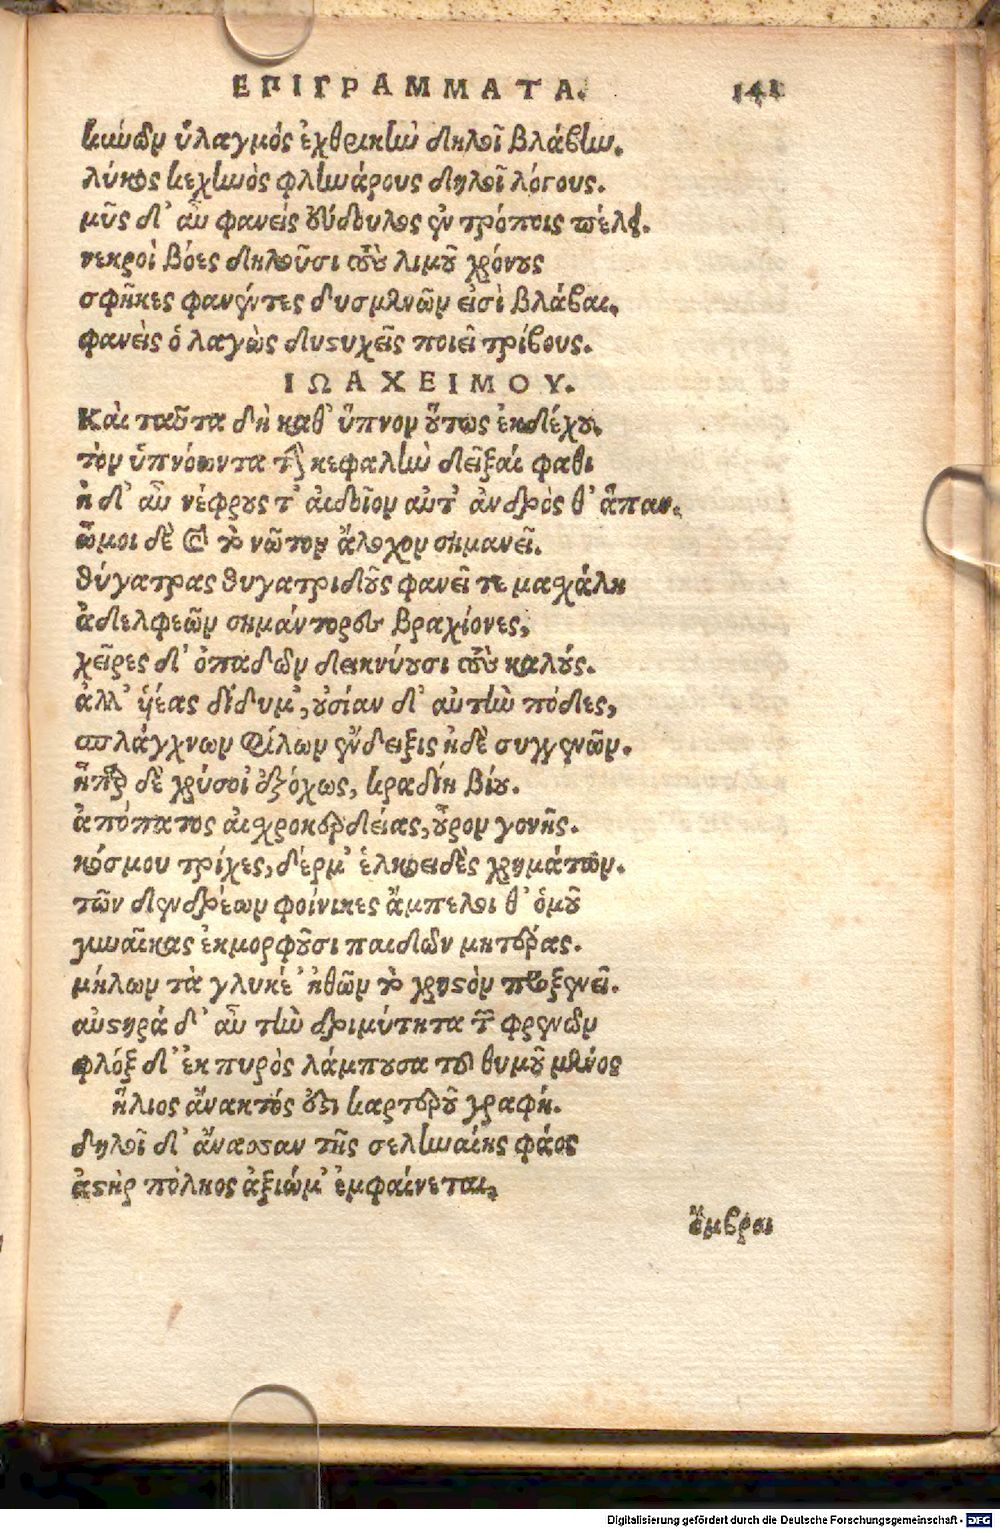 ΕΠΙΓΡΑΜΜΑΤΑ. 141
κυνῶν ὑλαγμὸς ἐχθρικὴν δηλοῖ βλάβην.
λύκος κεχηνὸς φληνάφους δηλοῖ λόγους.
μῦς δ' αὖ φανεὶς εὔδουλος ἐν τρόποις πέλει.
νεκροὶ βόες δηλοῦσι τοὺς λιμοῦ χρόνους
σφῆκες φανέντες δυσμενῶν εἰσὶ βλάβαι.
φανεὶς ὁ λαγὼς δυστυχεῖς ποιεῖ τρίβους.
ΙΩΑΧΕΙΜΟΥ.
Καὶ ταῦτα δὴ καθ' ὕπνον οὕτως ἐκδέχου.
τὸν ὑπνόωντα τὴν κεφαλὴν δεῖξαι φαθι
ἢ δ' αὖ νέφρους τ' αἰδοῖον αὐτ' ἀνδρὸς θ' ἅπαν.
ὦμοι δὲ καὶ τὸ νῶτον ἄλοχον σημανεῖ.
θύγατρας θυγατριδοῦς φανεῖ τε μασχάλη
ἀδελφεῶν σημάντορες βραχίονες,
χεῖρες δ' ὀπαδῶν δεικνύουσι τοὺς καλούς.
ἀλλ' υἱέας δίδυμ', οὐσίαν δ' αὐτὴν πόδες,
σπλάγχνων φίλων ἔνδειξις ἠδὲ συγγενῶν.
ἧπαρ δὲ χρύσοῖ ἐξόχως, κραδίη βίου.
ἀπόπατος αἰσχροκερδείας, οὖρον γονῆς.
κόσμου τρίχες, δέρμ' ἑλκοειδὲς χρημάτων.
τῶν δενδρέων φοίνικες ἄμπελοι θ' ὁμοῦ
γυναῖκας ἐκμορφοῦσι παιδῶν μητέρας.
μήλων τὰ γλυκέ' ἠθῶν τὸ χρηστὸν προξενεῖ.
αὐστηρά δ' αὖ τὴν δριμύτητα τῶν φρενῶν
φλόξ δ' ἐκ πυρὸς λάμπουσα τοῦ θυμοῦ μένος
ἥλιος ἄνακτός ἐστι καρτεροῦ γραφή.
δηλοῖ δ' ἄνασσαν τῆς σεληναίης φάος
ἀστὴρ πόληος ἀξιώμ' ἐμφαίνεται,
ὄμβροι
Digitalisierung gefördert durch die Deutsche Forschungsgemeinschaft - DFG